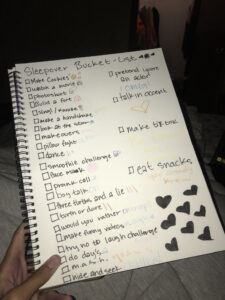 Sleepover Bucket-List
Make Cookies
watch a movie
photoshoot
Build a fort
make a handshake
look at the stars
makeovers
pillow fight
dance
smoothie challenge
Face mask
prank call
boy talk
three truths and a lie
truth or dare
would you rather
make funny videos
try no to laugh challenge
do
m.a.s.h.
hide and seek
pretend youre
an actor
talk in accent
make tik tok
eat snacks